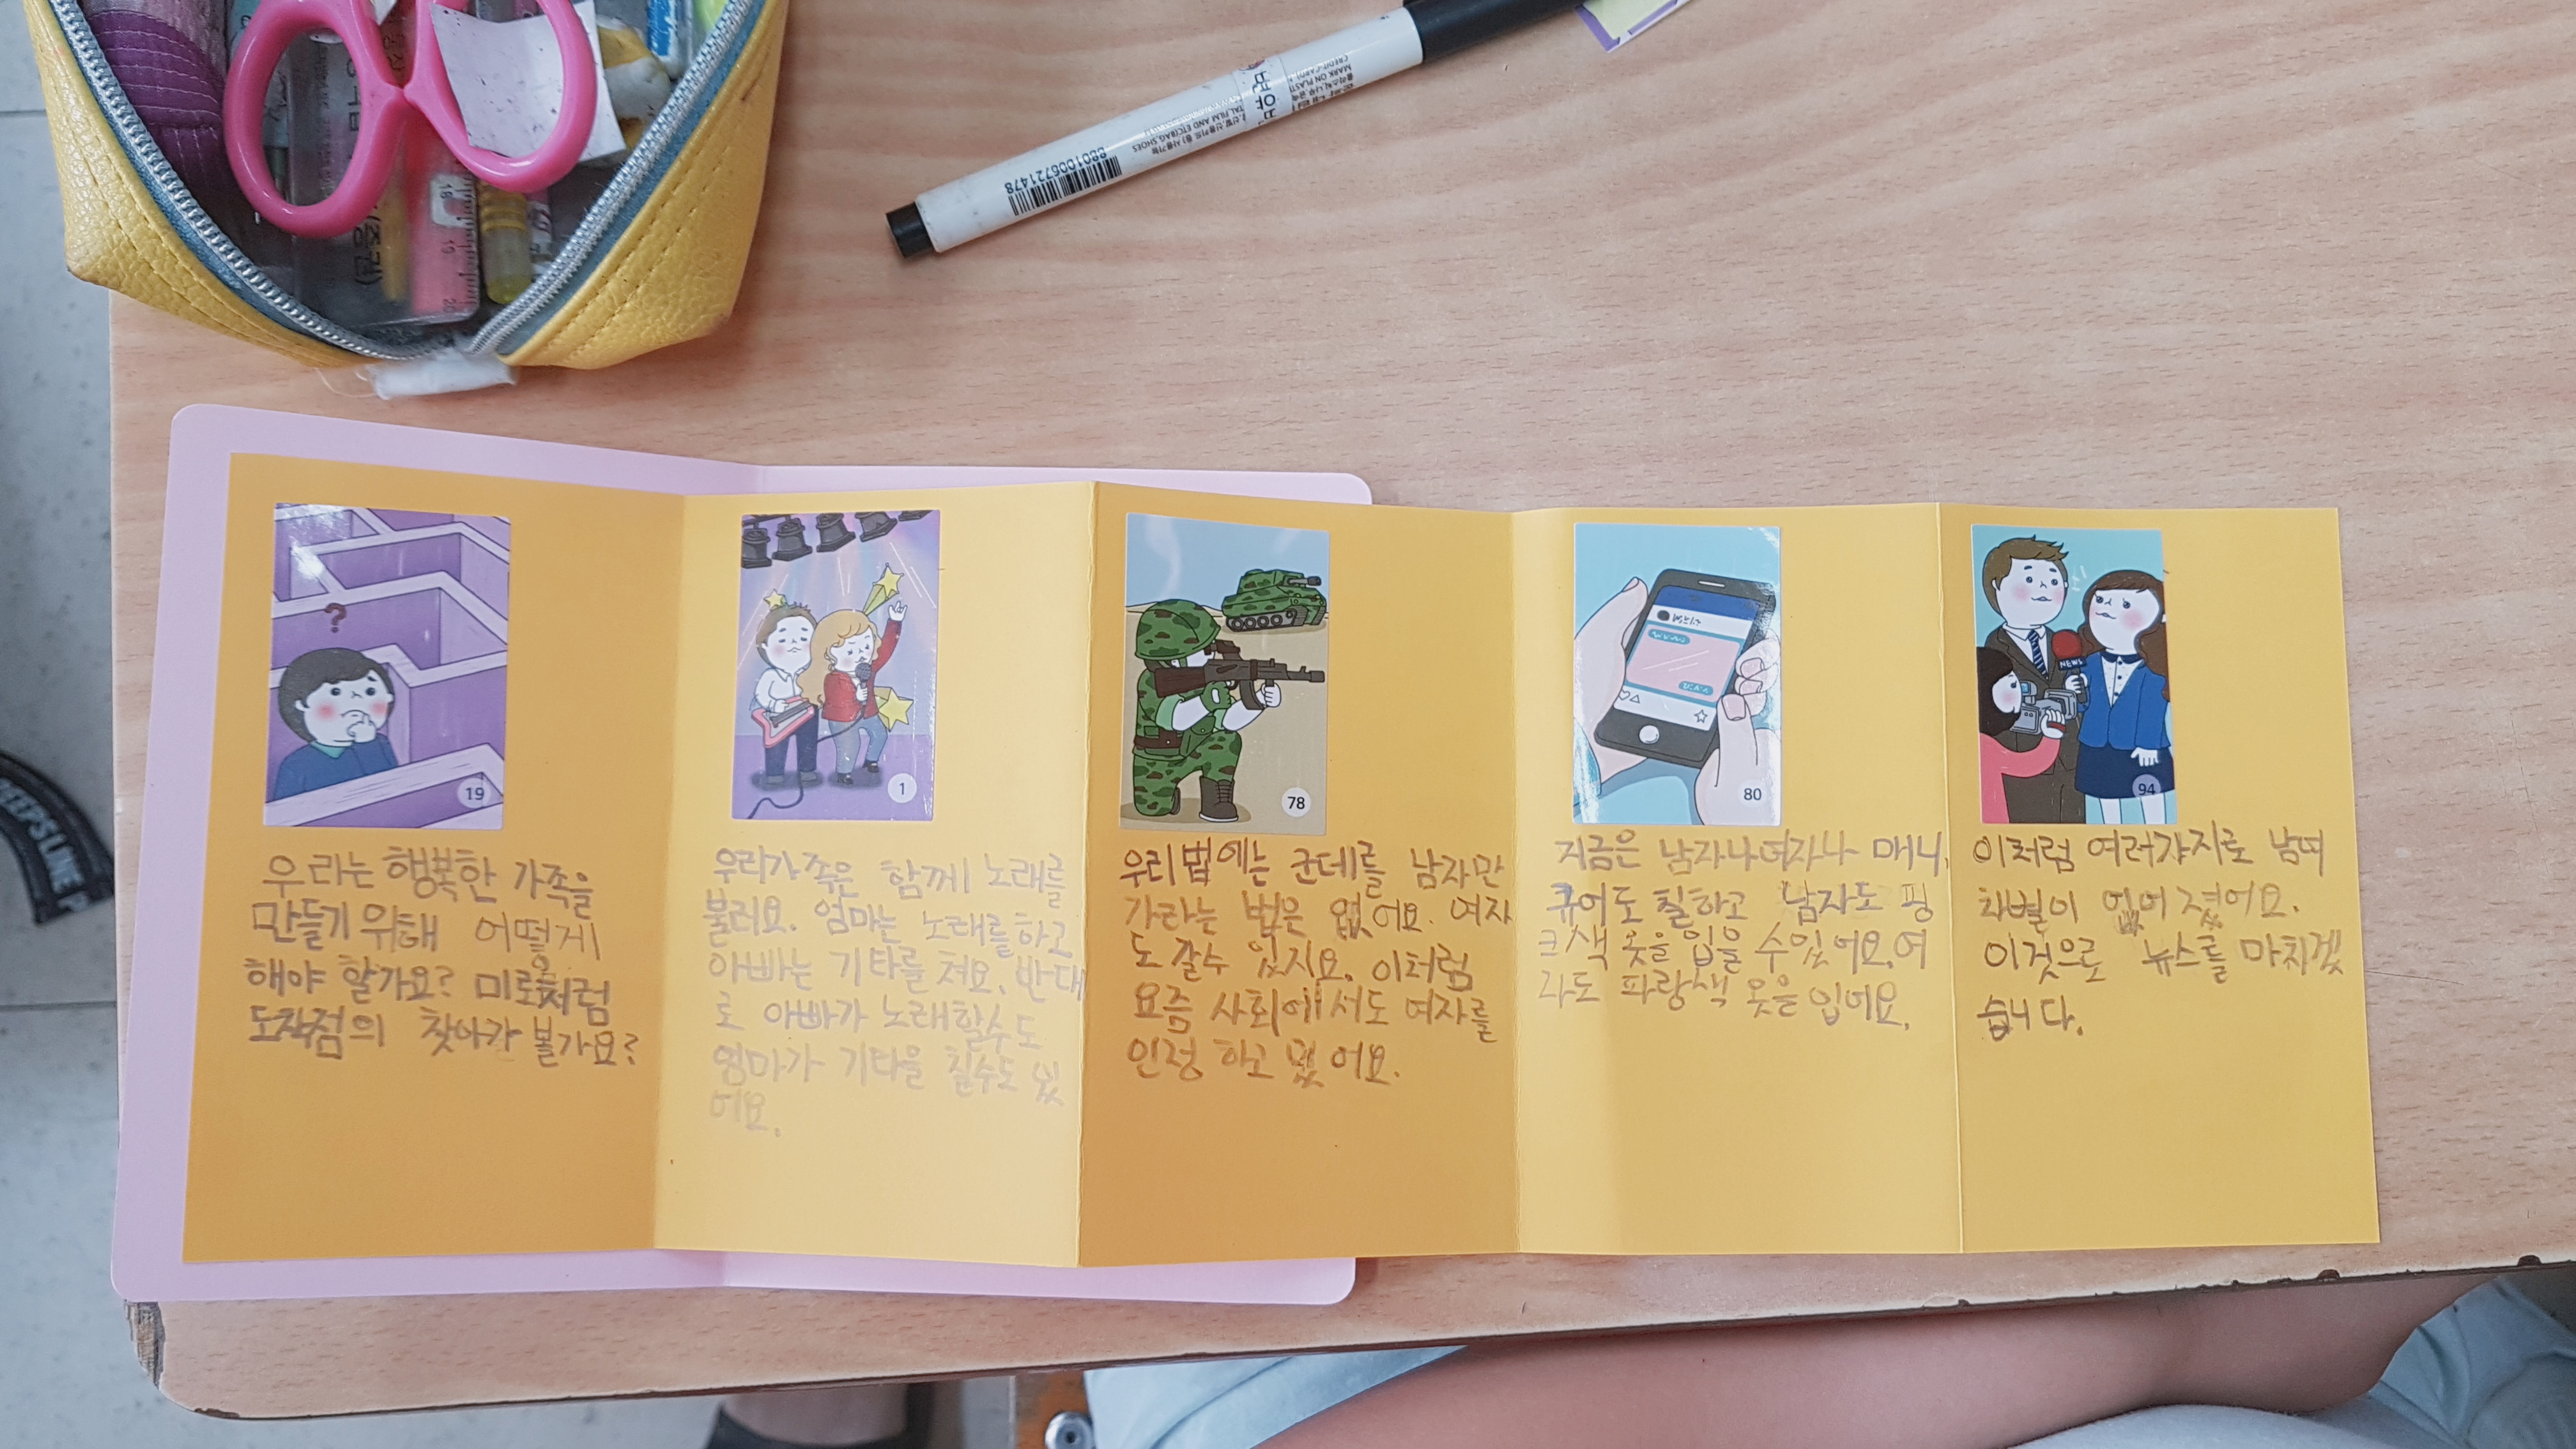 번야번
8801006721478
TAL FILM AND ETC(BAG,SHOES
MARK ON PLAST
CREDIT-CARD
?
19
우리는 행복한 가족을
만들기 위해 어떻게
해야 할가요? 미로처럼
도착점의 찾아가 볼가요?
1
우리가족은 함께 노래를
불러요. 엄마는 노래를 하고
아빠는 기타를 쳐요. 반대
로 아빠가 노래할수도
엄마가 기타을 칠수도 있
어요.
78
우리 법에는 군데를 남자만
가라는 법은 없어요. 여자
도 갈수 있지요. 이처럼
요즘 사회에서도 여자를
인정 하고 있어요.
80
지금은 남자나 여자나 매니
큐어도 칠하고 남자도 핑
크색 옷을 입을 수 있어요. 여
자도 파랑색 옷을 입어요.
NEWS
94
이처럼 여러가지로 남여
차별이 없어졌어요.
이것으로 뉴스를 마치겠
습니다.